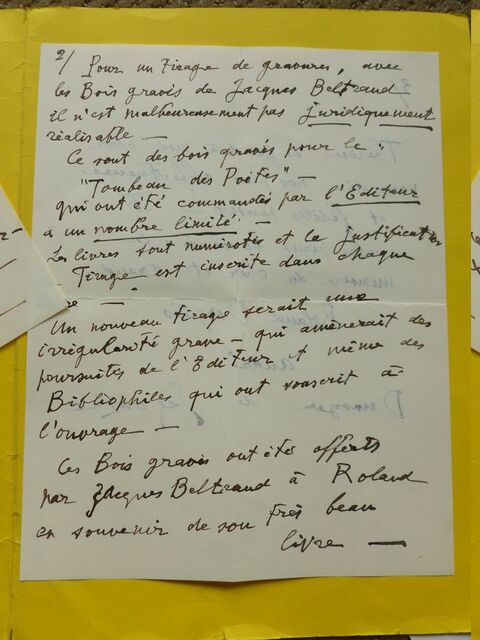 2/ Pour un tirage de gravures, avec
les Bois gravés de Jacques Beltrand
il n'est malheureusement pas juridiquement
réalisable —
Ce sont des bois gravés pour le "
"Tombeau des Poètes" —
qui ont été commandés par l'Editeur
a un nombre limité. —
Les livres sont numérotés et la justification
Tirage est inscrite dans chaque
—
Un nouveau tirage serait une
irrégularité grave — qui amènerait des
poursuites de l'Editeur et même des
Bibliophiles qui ont souscrit à
l'ouvrage —
Ces Bois gravés ont été offerts
par Jacques Beltrand à Roland
en souvenir de son très beau
livre —